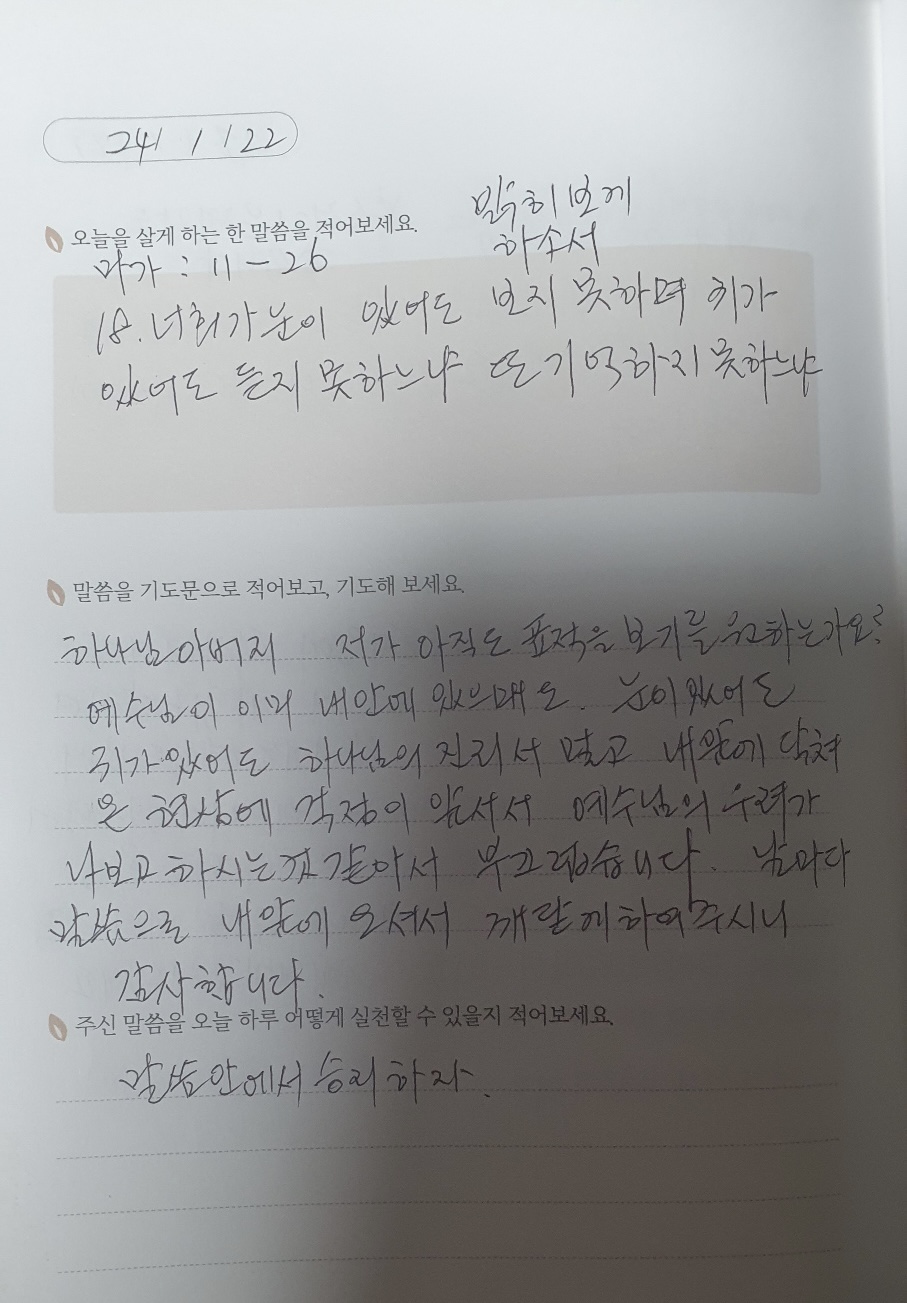 241 / 122
밝히 보게
오늘을 살게 하는 한 말씀을 적어보세요.
하소서
마가 : 11 - 26
18. 너희가 눈이 있어도 보지 못하며 귀가
있어도 듣지 못하느냐 또 기억하지 못하느냐
말씀을 기도문으로 적어보고, 기도해 보세요.
하나님 아버지 저가 아직도 표적을 보기를 원하는가요?
예수님이 이미 내안에 있으매도. 눈이 있어도
귀가 있어도 하나님의 진리서 멀고 내앞에 닥쳐
온 현상에 걱정이 앞서서 예수님의 우려가
나보고 하시는것 같아서 부끄럽습니다. 날마다
말씀으로 내앞에 오셔서 깨닫게하여주시니
감사합니다.
주신 말씀을 오늘 하루 어떻게 실천할 수 있을지 적어보세요.
말씀안에서 승리하자.